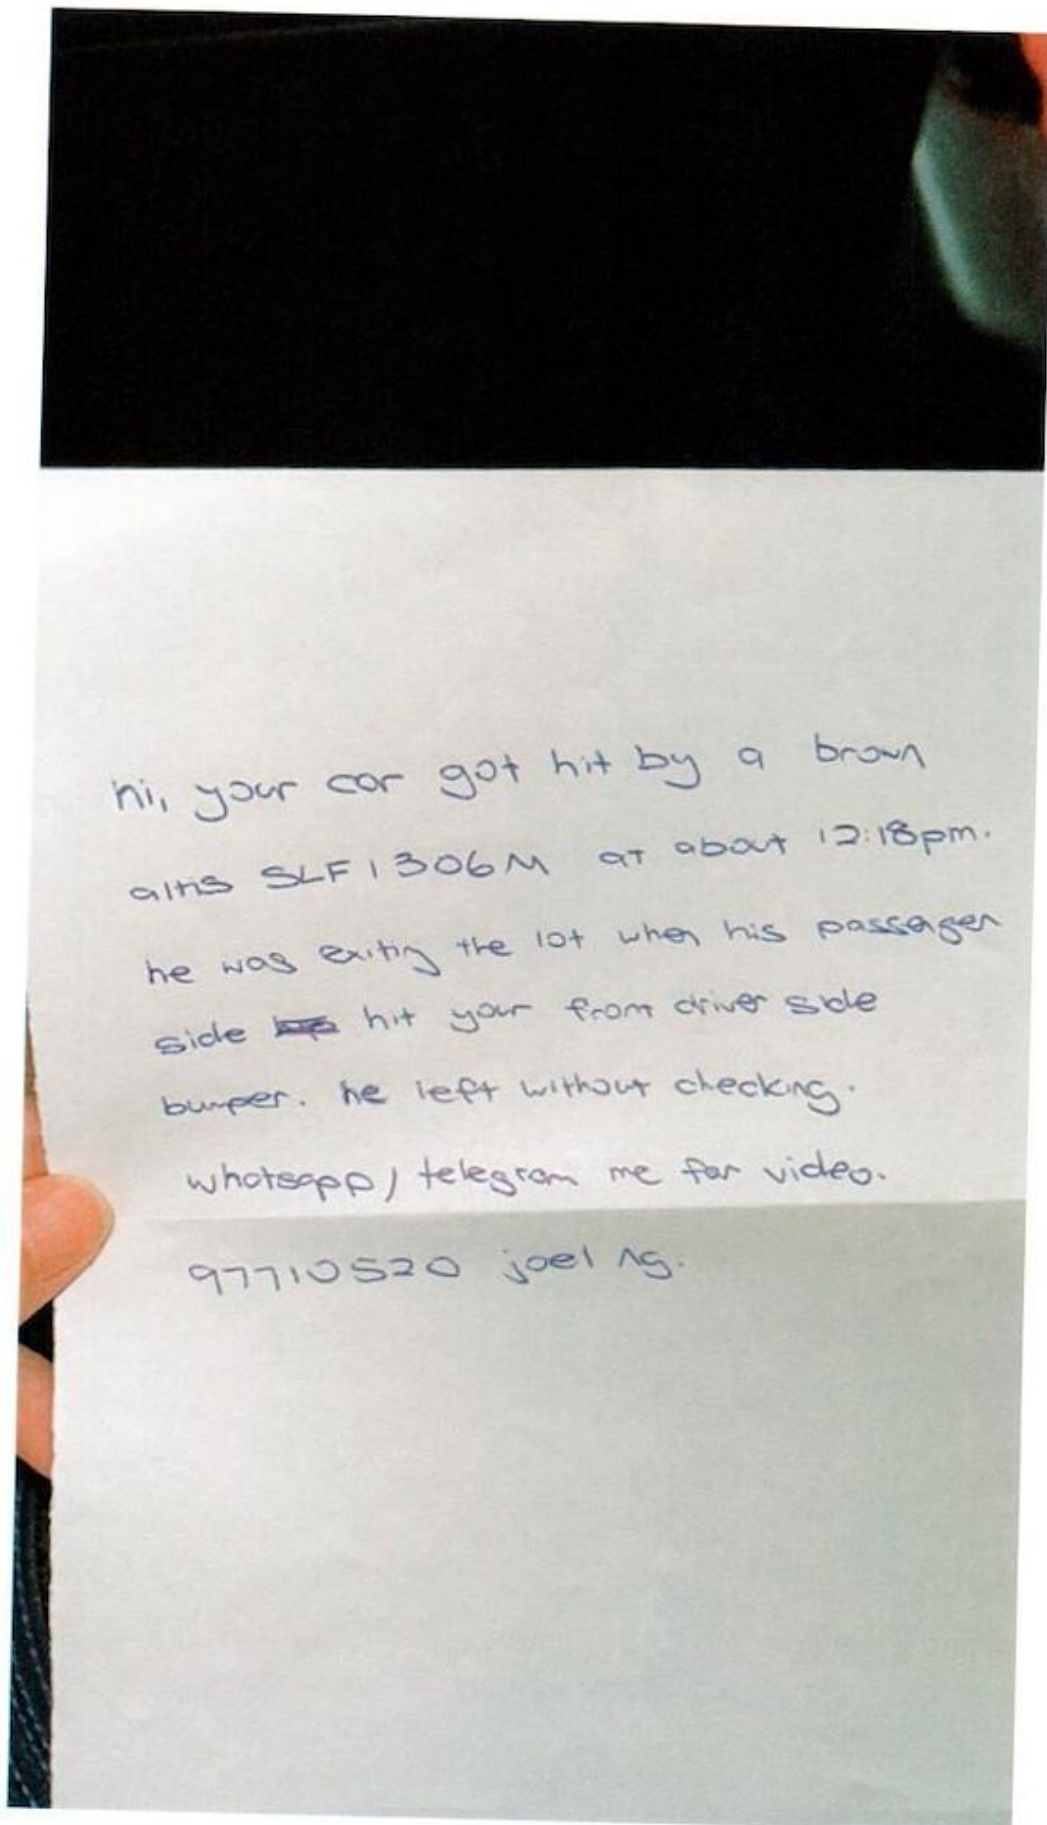 hi, your car got hit by a brown
altis SLF1306M at about 12:18pm.
he was exiting the lot when his passenger
side hit your front driver side
bumper. he left without checking.
whatsapp/telegram me for video.
97710520 joel ng.